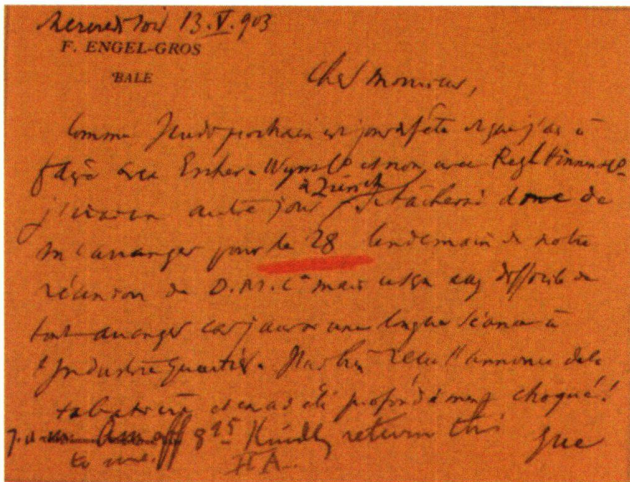 Mercredi soir 13.V.903
F. ENGEL-GROS
BALE
Cher Monsieur,
Comme Jeudi prochain est jour de fête et que j'ai à
faire avec Escher-Wyss & Cº et non avec
à Zürich
j'irai un autre jour Je tâcherai donc de
m'arranger pour le 28 lendemain de notre
réunion de D.M.C. mais ce sera difficile de
tout arranger car j'aurai une longue séance à
l'Industrie Quartier. reçu l'annonce de la
et en ai été profondément choqué!
8 25 Kindly return this
to me. HA.